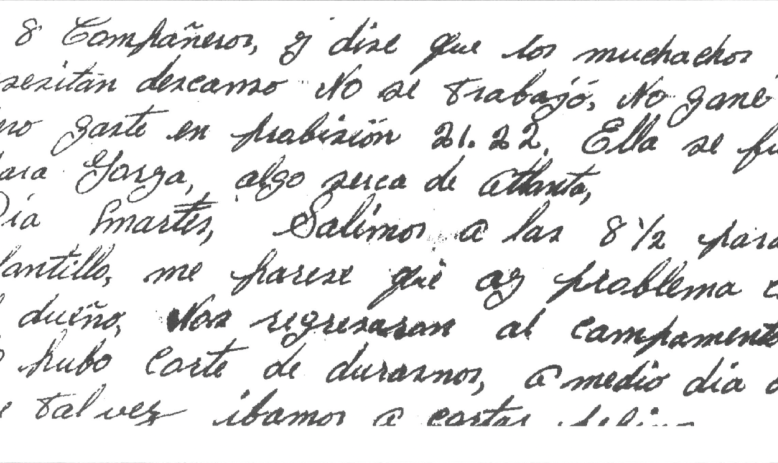 8 Compañeros, y dise que los muchachos
sesitan descanso No se trabajó, No gane
ero gaste en prabisión 21.22, Ella se fu
ara Yorga, algo serca de atlanta,
Día martes, Salimos a las 8 1/2 para
lantillo, me parese que ay problema c
l dueño, Nos regresaran al campamento
hubo corte de durasnos, a medio dia
e tal vez ibamos a cortar